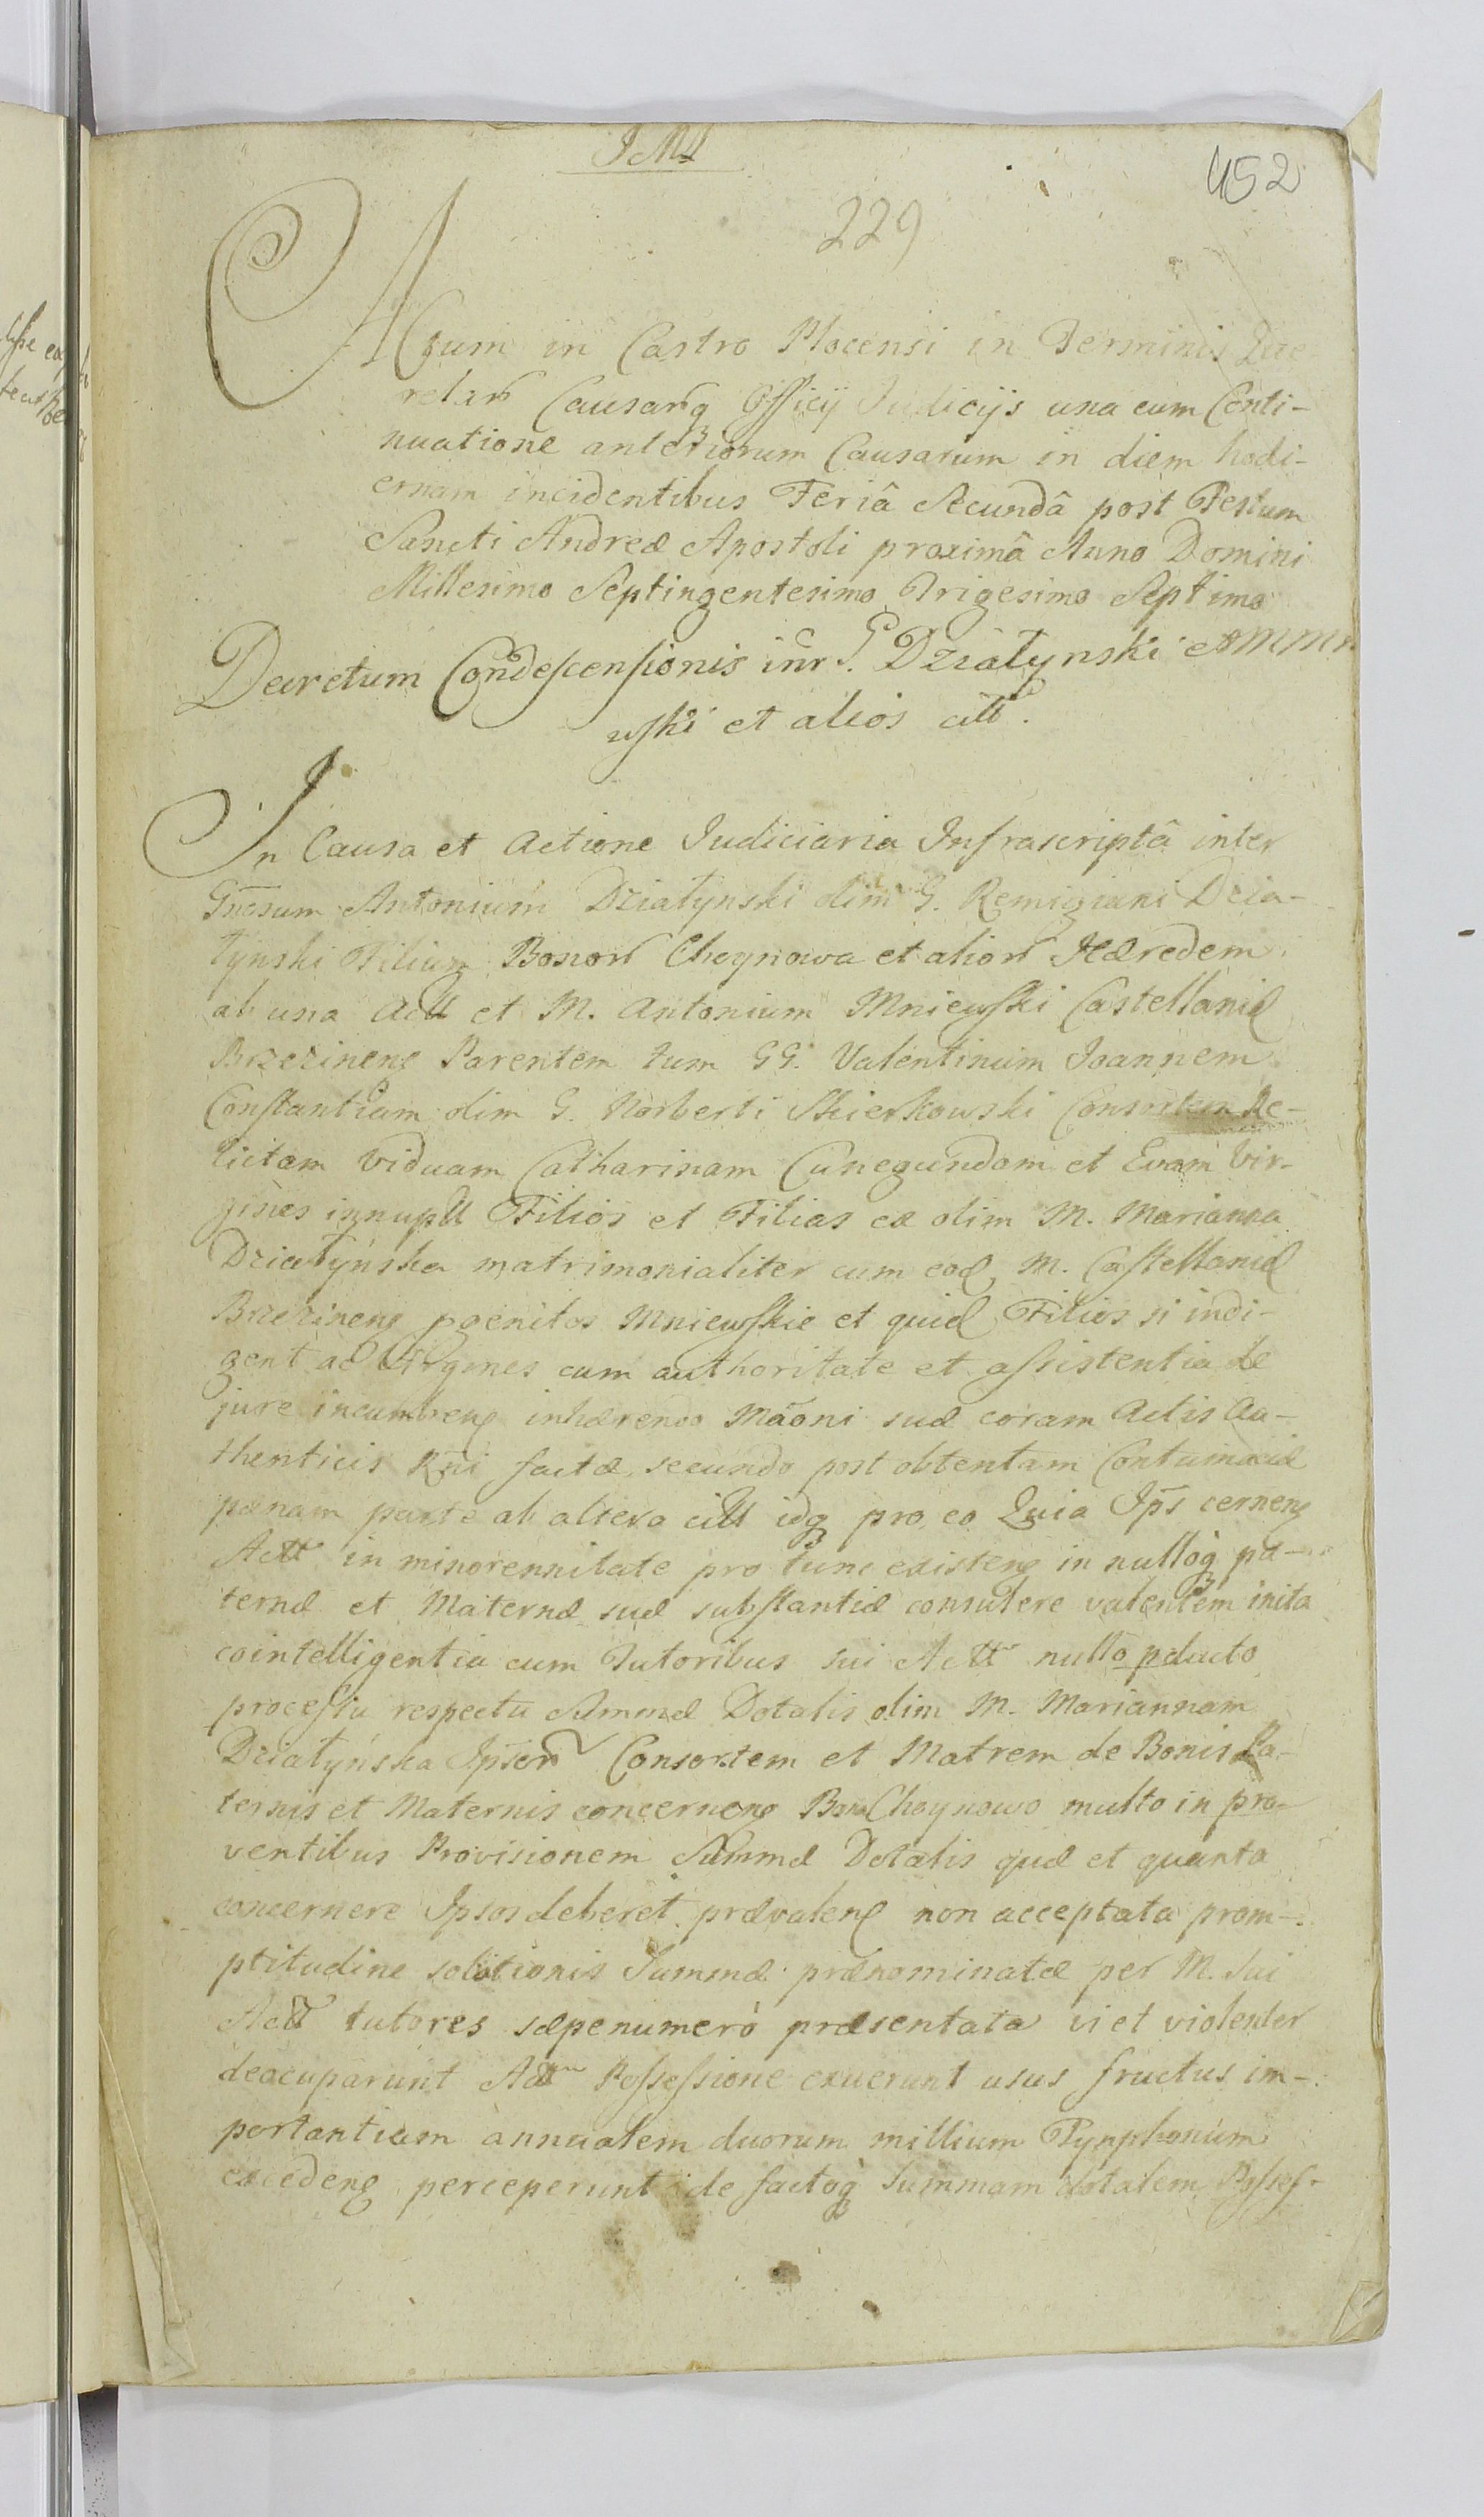 JMJ
452
229
Actum in Castro Plocensi in Terminis Quae
relar Causarq Officij Judicijs una cum Conti-
nuatione anteriorum Causarum in diem hodi-
ernam incidentibus Feriâ Secundâ post Festum
Sancti Andreæ Apostoli proximâ Anno Domini
Millesimo Septingentesimo Trigesimo Septimo
Decretum Condescensionis inr G. Dziatynski et MMn
wski et alios citt.
In Causa et Actione Judiciaria Infrascriptâ inter
Gnosum Antonium Dziatynski olim G. Remigiani Dzia-
tynski Filium Bonor Choynowa et alior Hæredem
ab una Actt et M. Antonium Mniewski Castellanū
Brzezinens Parentem tum GG. Valentinum Joannem
Constantiam olim G. Norberti Skierkowski Consortem Re-
lictam Viduam Catharinam Cunegundam et Evam Vir-
gines innuptt Filios et Filias ex olim M. Marianna
Dziatyńska matrimonialiter cum eod M. Castellanū
Brzezinens pgenitos Mniewskie et quid Filios si indi-
gent ac Virgines cum authoritate et assistentia de
jure incumbens inhærendo Mãoni suæ coram Actis Au-
thenticis Rni factæ, secundo post obtentam Contumaciæ
pænam parte ab altera citt idq pro eo Quia Ips cernens
Actt in minorennitate pro tunc existens in nulloq pa-
ternæ et Maternæ suæ substantiæ consulere valentem inita
cointelligentia cum Tutoribus sui Actt nullo pducto
processu respectu Summæ Dotalis olim M. Mariannam
Dziatyńska Ipsor Consortem et Matrem de Bonis Pa-
ternis et Maternis concernens Bona Choynowo multo in pro-
ventibus Provisionem Summæ Dotalis quæ et quanta
concernere Ipsos deberet prævalens non acceptata prom-
ptitudine solutionis Summæ prænominatæ per M. Sui
Actt tutores sæpenumerò præsentata vi et violenter
deocuparunt Actt Possessione exuerunt usus fructus im-
portantiam annualem duorum millium Tynphonum
excedens perceperunt de factoq Summam dotalem Posses-